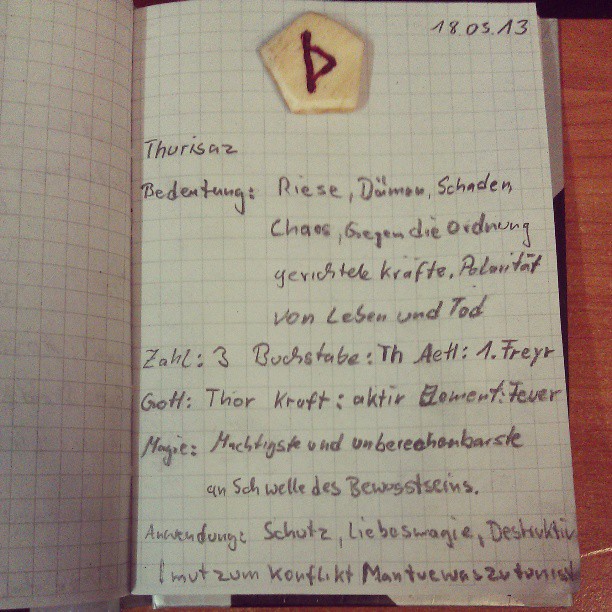 18.03.13
Þ
Thurisaz
Bedeutung: Riese, Dämon, Schaden,
Chaos, Gegen die Ordnung
gerichtete Kräfte, Polarität
von Leben und Tod
Zahl: 3 Buchstabe: Th Aett: 1. Freyr
Gott: Thor Kraft: aktiv Element: Feuer
Magie: Mächtigste und unberechenbarste
an Schwelle des Bewusstseins.
Anwendung: Schutz, Liebesmagie, Destruktiv
mut zum Konflikt Mantuewaszutunist